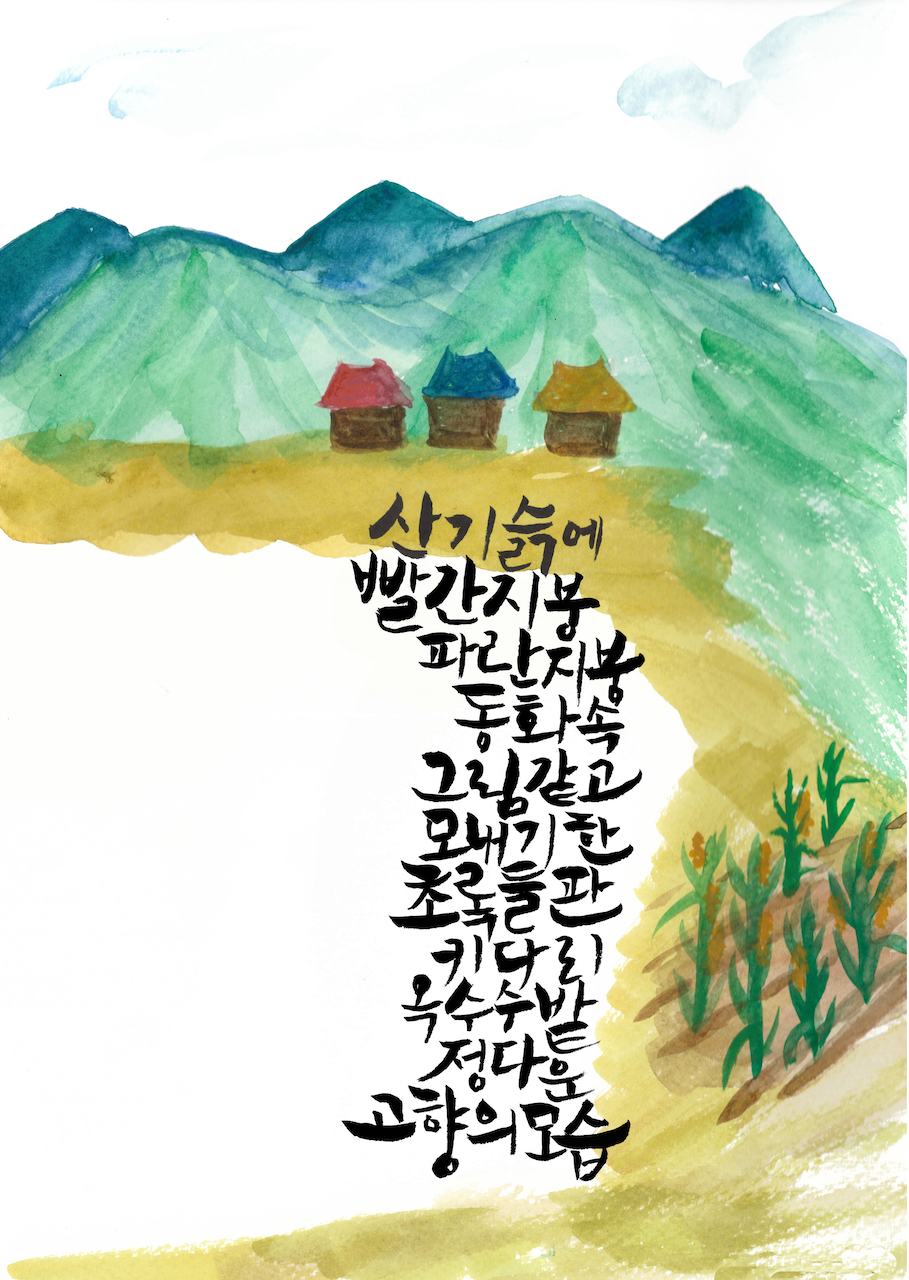 산기슭에
빨간지붕
파란지붕
동화속
그림같고
모내기한
초록들판
키다리
옥수수밭
정다운
고향의모습